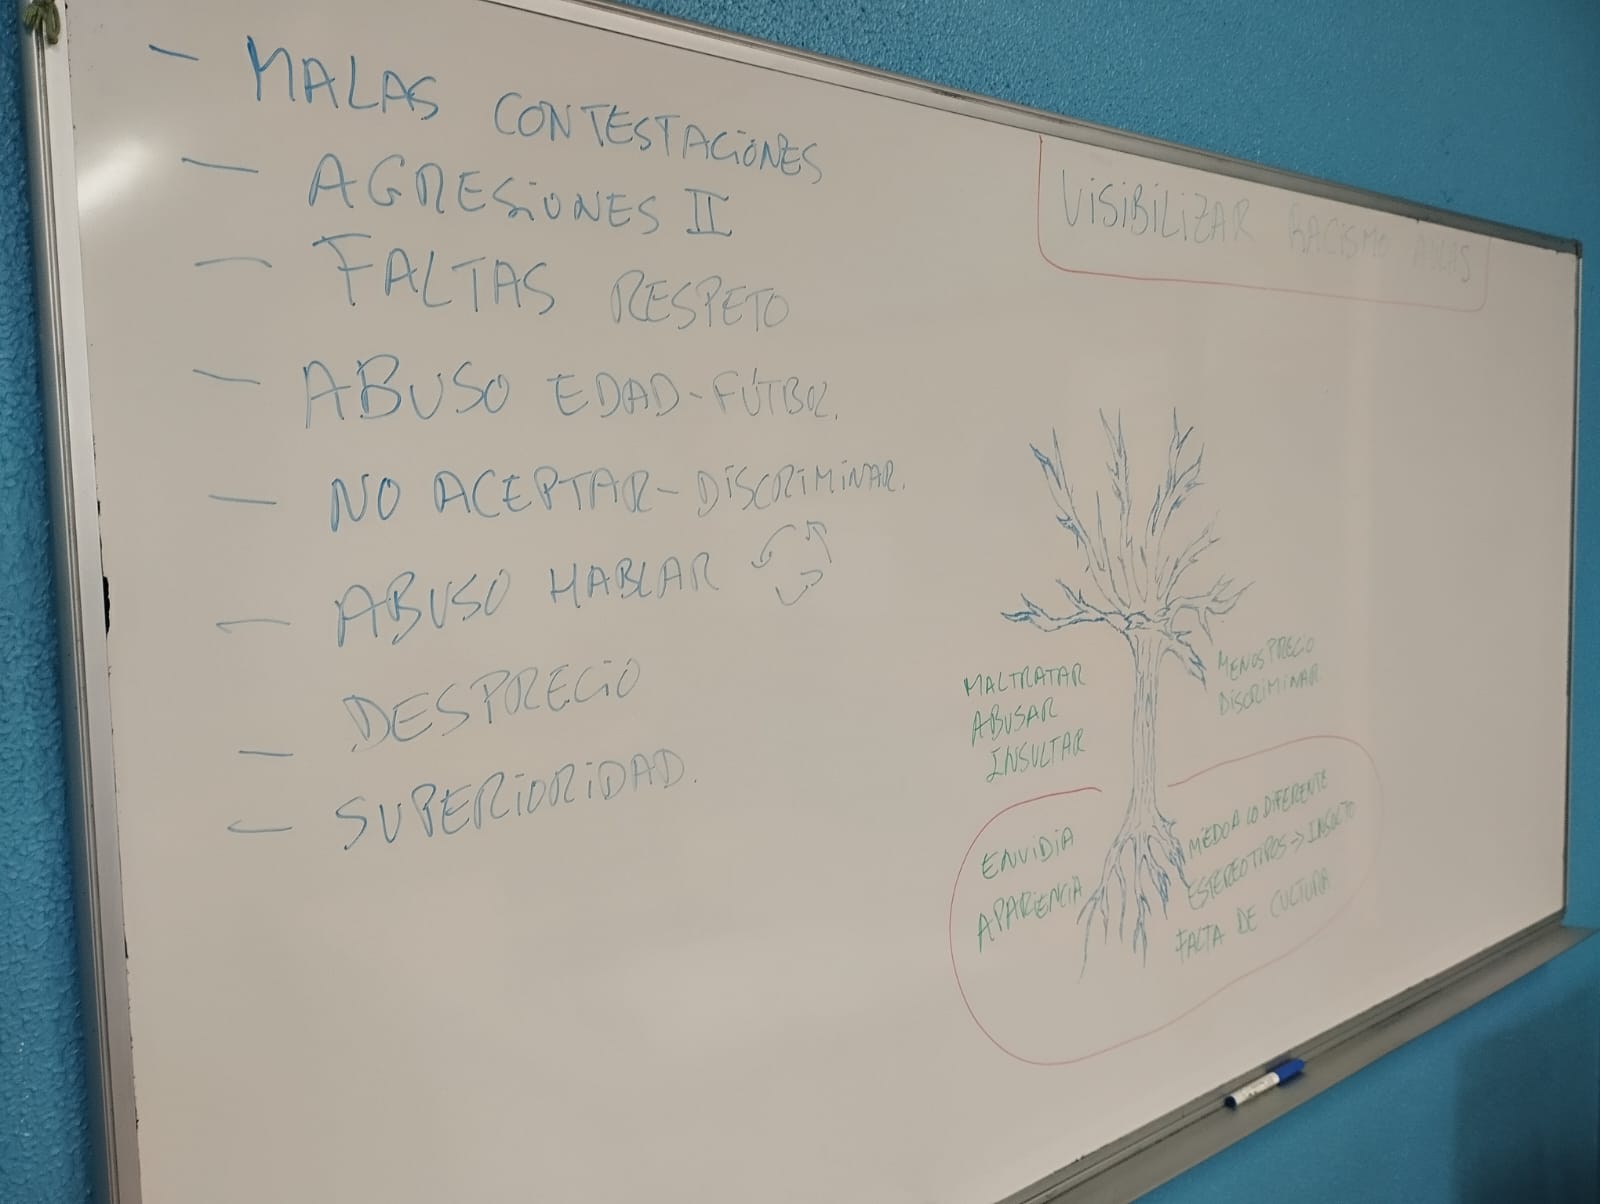 - MALAS CONTESTACIONES
- AGRESIONES II
- FALTAS RESPETO
- ABUSO EDAD-FÚTBOL.
- NO ACEPTAR-DISCRIMINAR.
- ABUSO HABLAR
- DESPRECIO
- SUPERIORIDAD.
VISIBILIZAR RACISMO AULAS
MALTRATAR
ABUSAR
INSULTAR
MENOSPRECIO
DISCRIMINAR
ENVIDIA
APARIENCIA
MIEDO A LO DIFERENTE
ESTEREOTIPOS → INSULTO
FALTA DE CULTURA